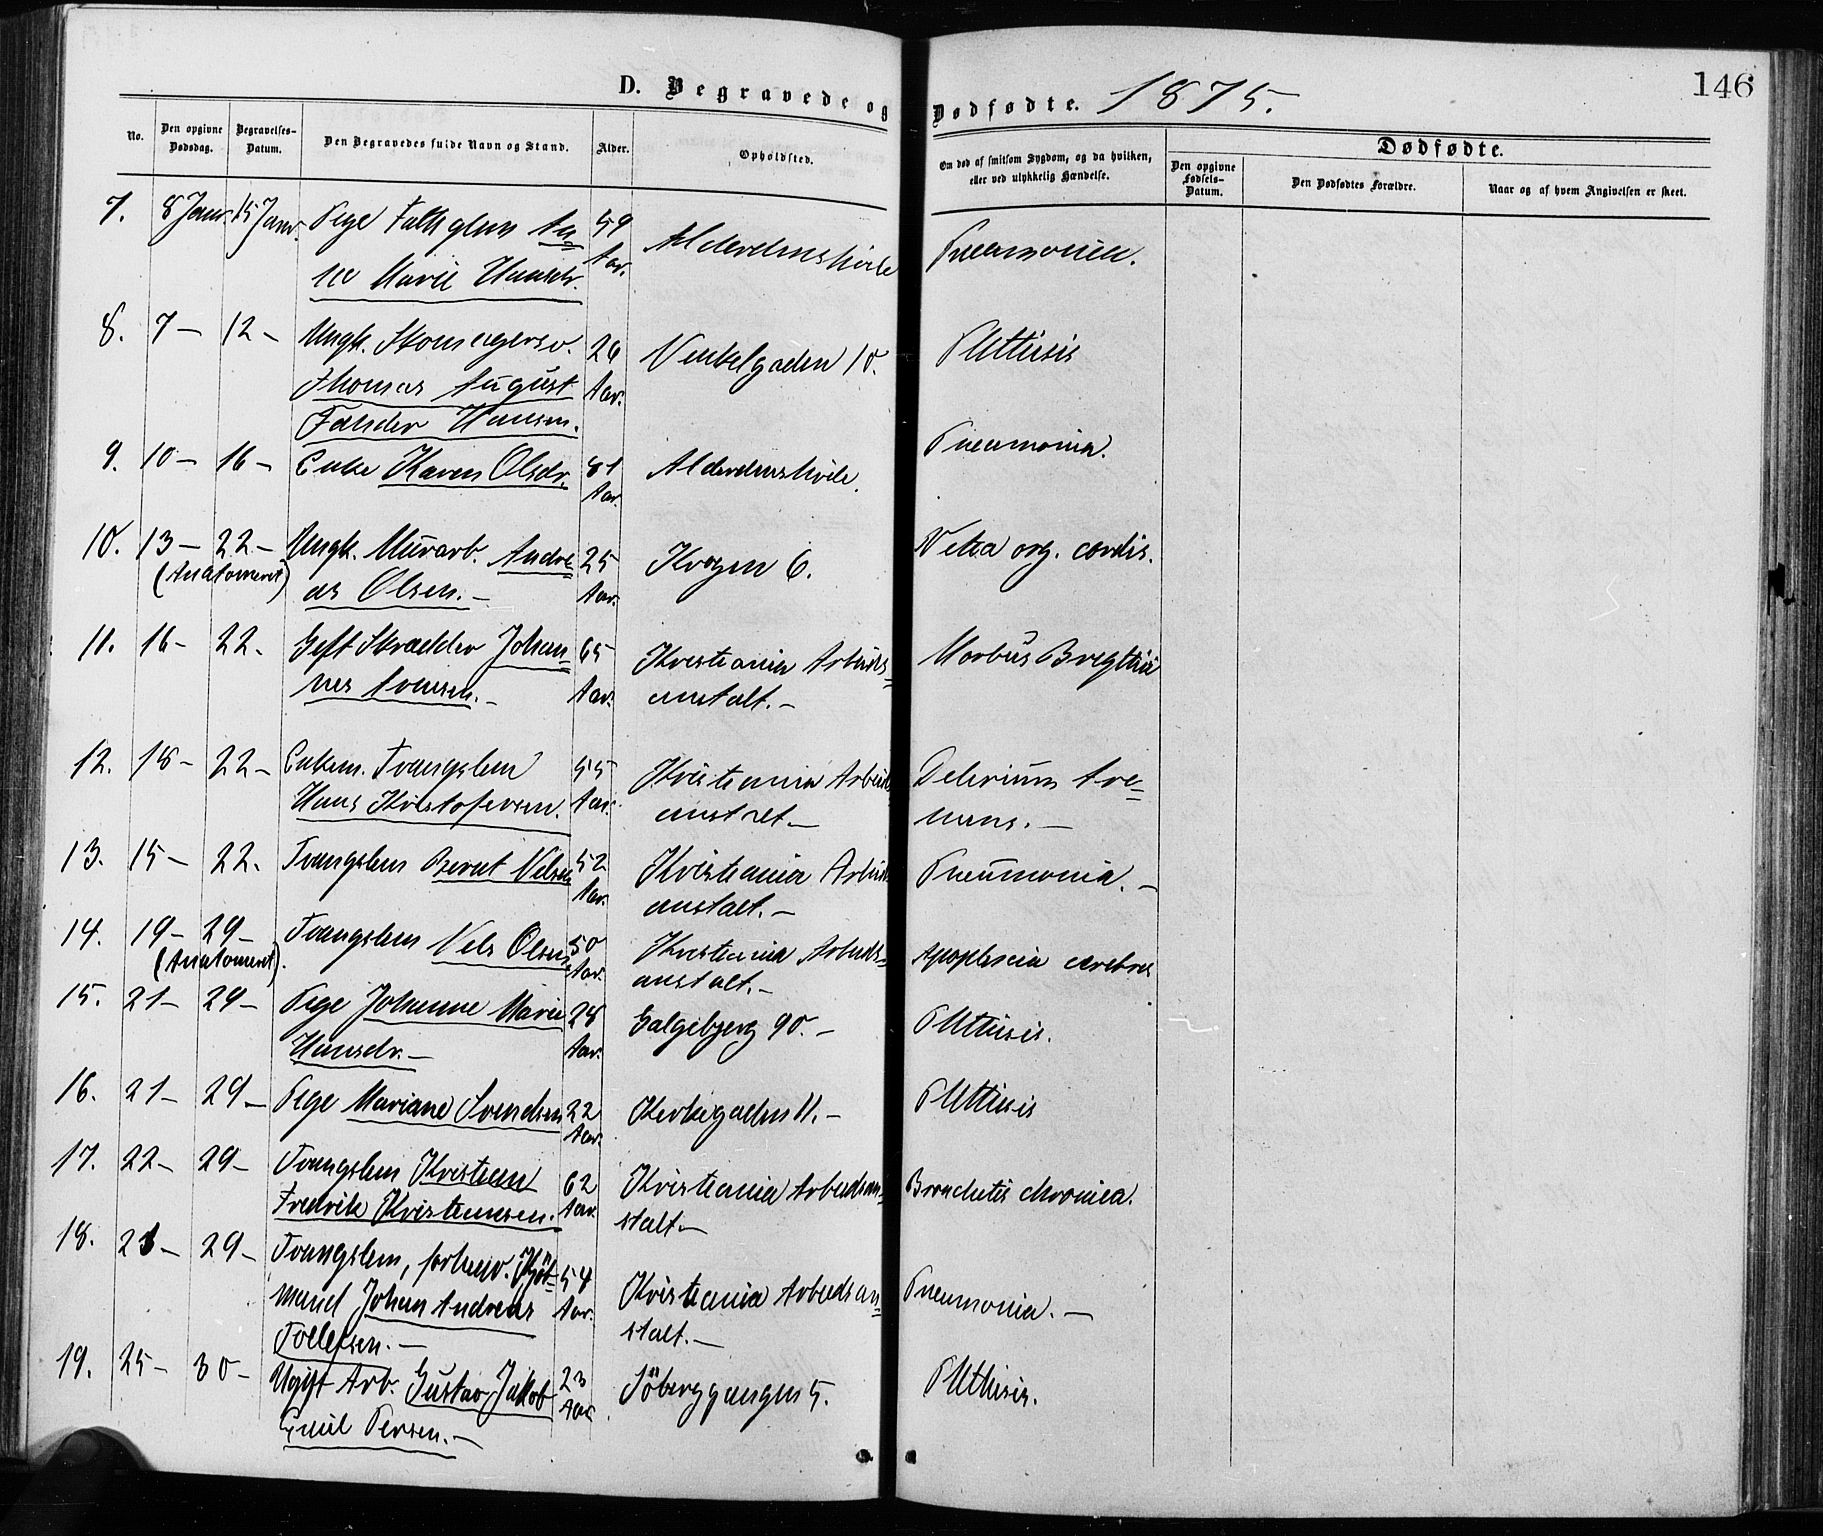 146
D. Begravede og Dødfødte. 1875.
No.
Den opgivne Dødsdag.
Begravelses-Datum.
Den Begravedes fulde Navn og Stand.
Alder.
Opholdsted.
Om død af smitsom Sygdom, og da hvilken, eller ved ulykkelig Hændelse.
Dødfødte.
Den opgivne Fødsels-Datum.
Den Dødfødtes Forældre.
Naar og af hvem Angivelsen er skeet.
7. 8 Janr. 15 Janr. Pige Fattiglem An= 59 Alderdomshvile Pneumonia.
ne Marie Hansdr. Aar.
8. 7 – 12 – Ungk. Skomagersv. 26 Vinkelgaden 10. Phthisis
Thomas August Aar.
Hansen.
9. 10 – 16 – Enke Karen Olsdr. 81 Alderdomshvile. Pneumonia.
Aar
10. 13 – 22 – Ungk. Murarb. Andre 25 Krogen 6. Vitia org. cordis.
(Anatomeret) as Olsen. – Aar.
11. 16 – 22. Gift Skrædder Johan= 65 Kristiania Arbeids= Morbus Brigthii
nes Svensen. – Aar. anstalt. –
12. 18 – 22 – Enkem. Tvangslem 55 Kristiania Arbeids Delirium tre=
Hans Kristofersen. Aar. anstalt – mens. –
13. 15 – 22. Tvangslem Bernt Nilsen 52 Kristiania Arbeids Pneumonia. –
Aar. anstalt. –
14. 19 – 29 – Tvangslem Nils Olsen 50 Kristiania Arbeids= Apoplexia cerebri
(Anatomeret). Aar. anstalt. –
15. 21 – 29 – Pige Johanne Marie 28 Galgebjerg 90. – Phthisis.
Hansdr. – Aar.
16. 21 – 29 – Pige Mariane Svendsen 22 Kirkegaden 11. – Phthisis
Aar.
17. 22 – 29 – Tvangslem Kristian 62 Kristiania Arbeidsan= Bronchitis chronica.
Fredrik Kristiansen. Aar. stalt. –
18. 29 – Tvangslem, forhenv. Kjöb= 54 Kristiania Arbeidsan= Pneumonia. –
mand Johan Andreas Aar. stalt. –
Tollefsen. –
19. 25 – 30 – Ugift Arb. Gustav Jakob 23 Söberggangen 5. Phthisis.
Emil Persen. – Aar